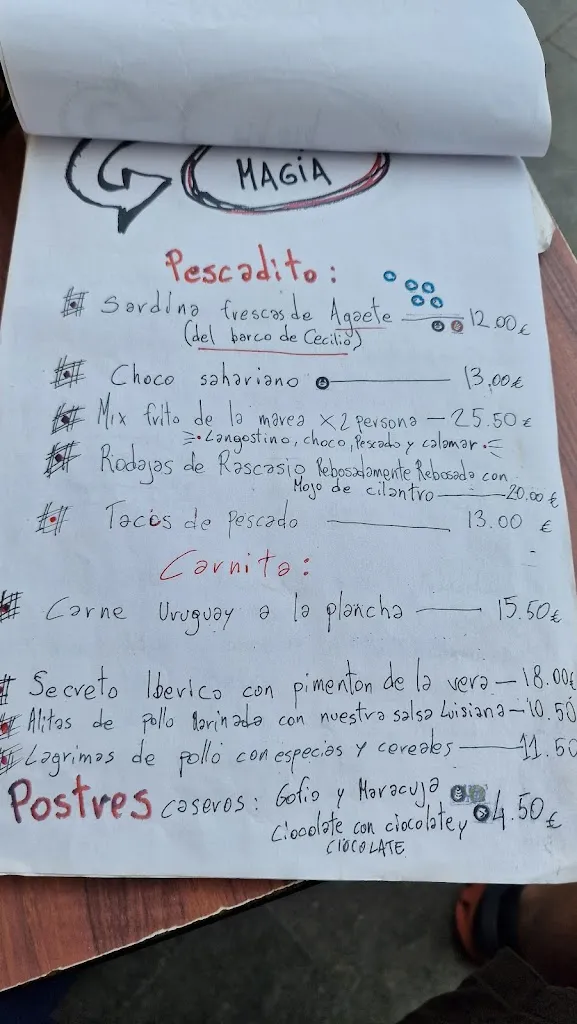 MAGIA
Pescadito:
# Sardina frescas de Agaete — 12.00€
(del barco de Cecilio)
# Choco sahariano — 13,00€
# Mix frito de la marea x2 persona — 25.50€
Langostino, choco, Pescado y calamar.
# Rodajas de Rascasio Rebosadamente Rebosada con
Mojo de cilantro — 20.00€
# Tacos de pescado — 13.00 €
Carnita:
# Carne Uruguay a la plancha — 15.50€
# Secreto Iberico con pimenton de la vera — 18.00€
# Alitas de pollo Marinada con nuestra salsa Luisiana — 10.50
# Lagrimas de pollo con especias y cereales — 11.50
Postres caseros: Gofio y Maracuja
Ciocolate con ciocolate y 4.50€
CIOCOLATE